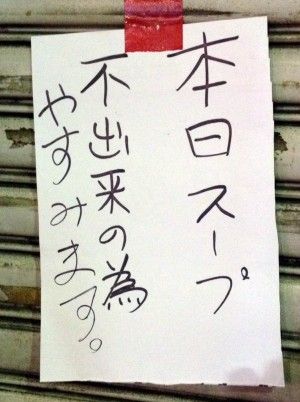 本日スープ
不出来の為
やすみます。